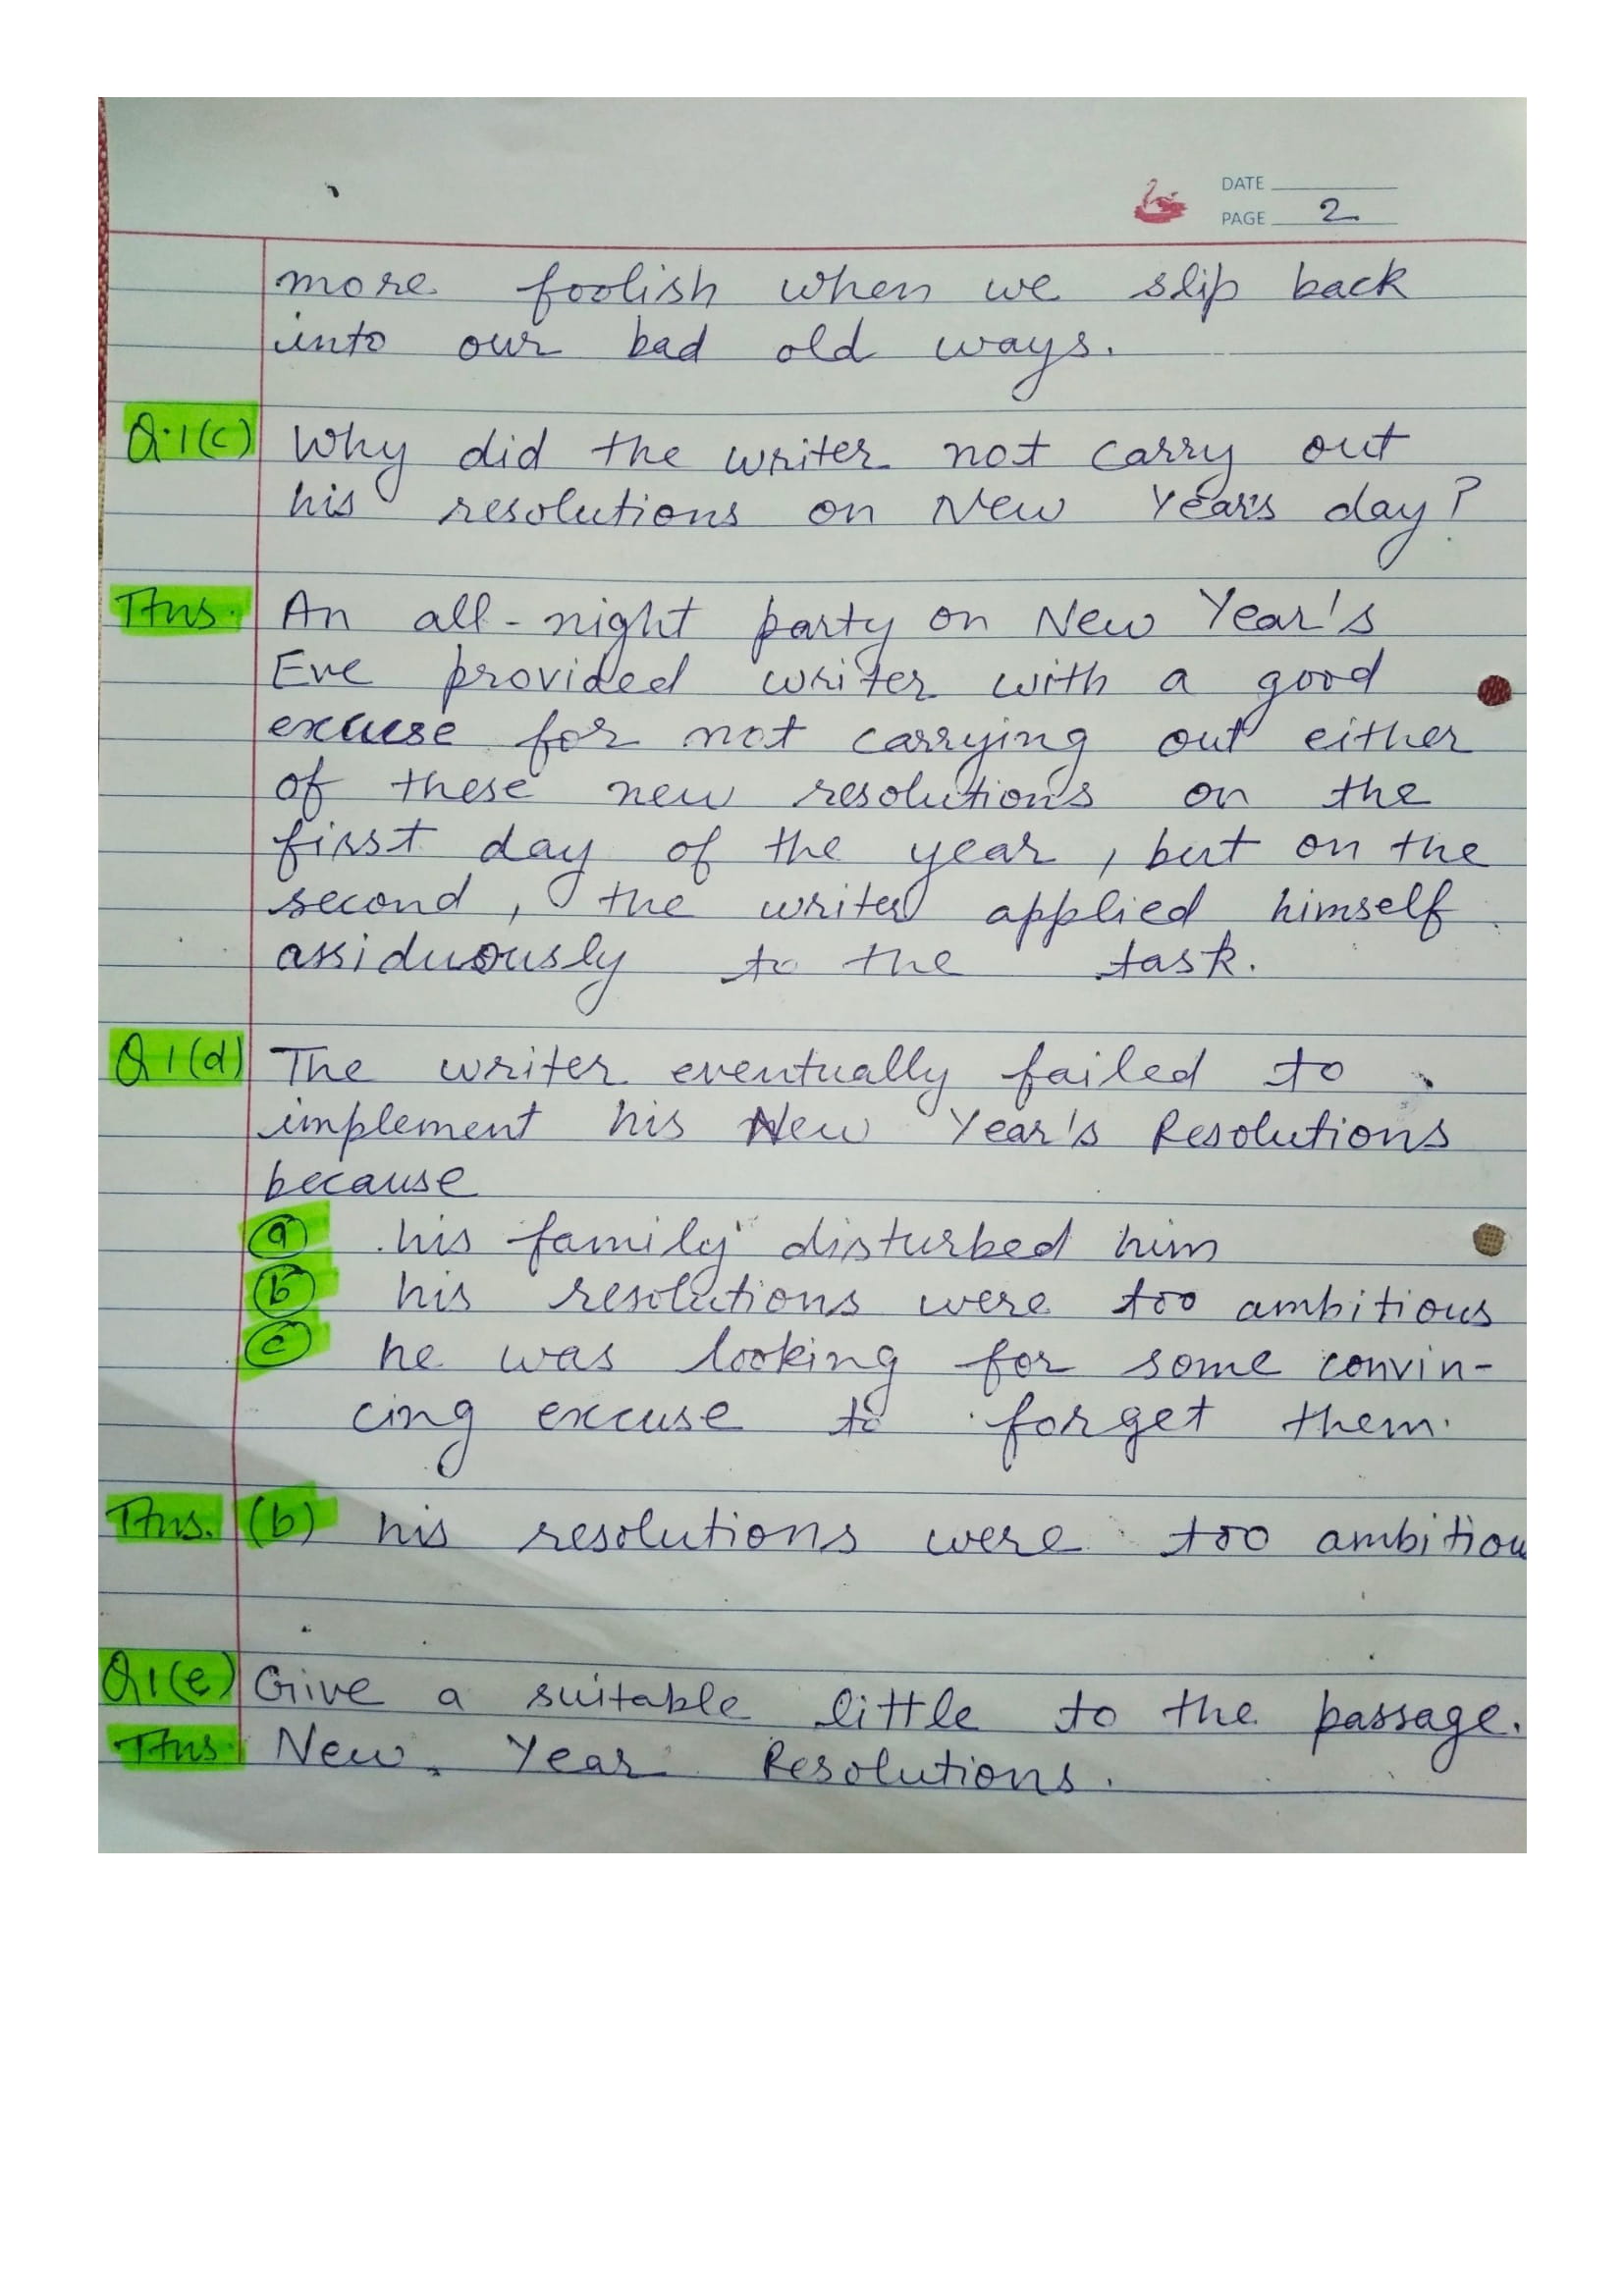 DATE
PAGE 2
more foolish when we slip back
into our bad old ways.
Q.1(c) Why did the writer not carry out
his resolutions on New Year's day?
Ans. An all-night party on New Year's
Eve provided writer with a good
excuse for not carrying out either
of these new resolutions on the
first day of the year, but on the
second, the writer applied himself
assiduously to the task.
Q1(d) The writer eventually failed to
implement his New Year's Resolutions
because
(a) his family disturbed him
(b) his resolutions were too ambitious
(c) he was looking for some convin-
cing excuse to forget them.
Ans. (b) his resolutions were too ambitiou
Q1(e) Give a suitable little to the passage.
Ans New Year Resolutions.